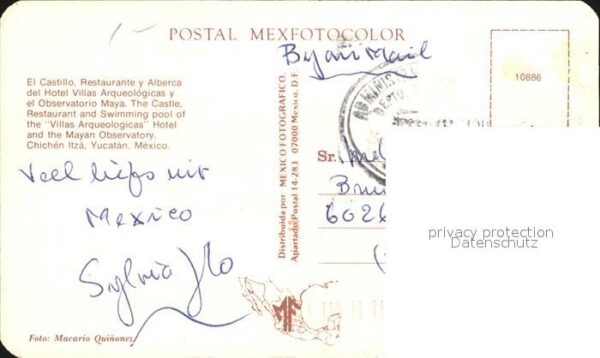 POSTAL MEXFOTOCOLOR
By air Mail
10886
El Castillo, Restaurante y Alberca
del Hotel Villas Arqueológicas y
el Observatorio Maya. The Castle,
Restaurant and Swimming pool of
the "Villas Arqueologicas" Hotel
and the Mayan Observatory,
Chichén Itzá, Yucatán, México.
Veel liefs uit
Mexico
Sylvia
Distribuida por MEXICO FOTOGRAFICO.
Apartado Postal 14-283 07000 Mexico, D.F.
Sr.
6026
privacy protection
Datenschutz
MF
Foto: Macario Quiñonez